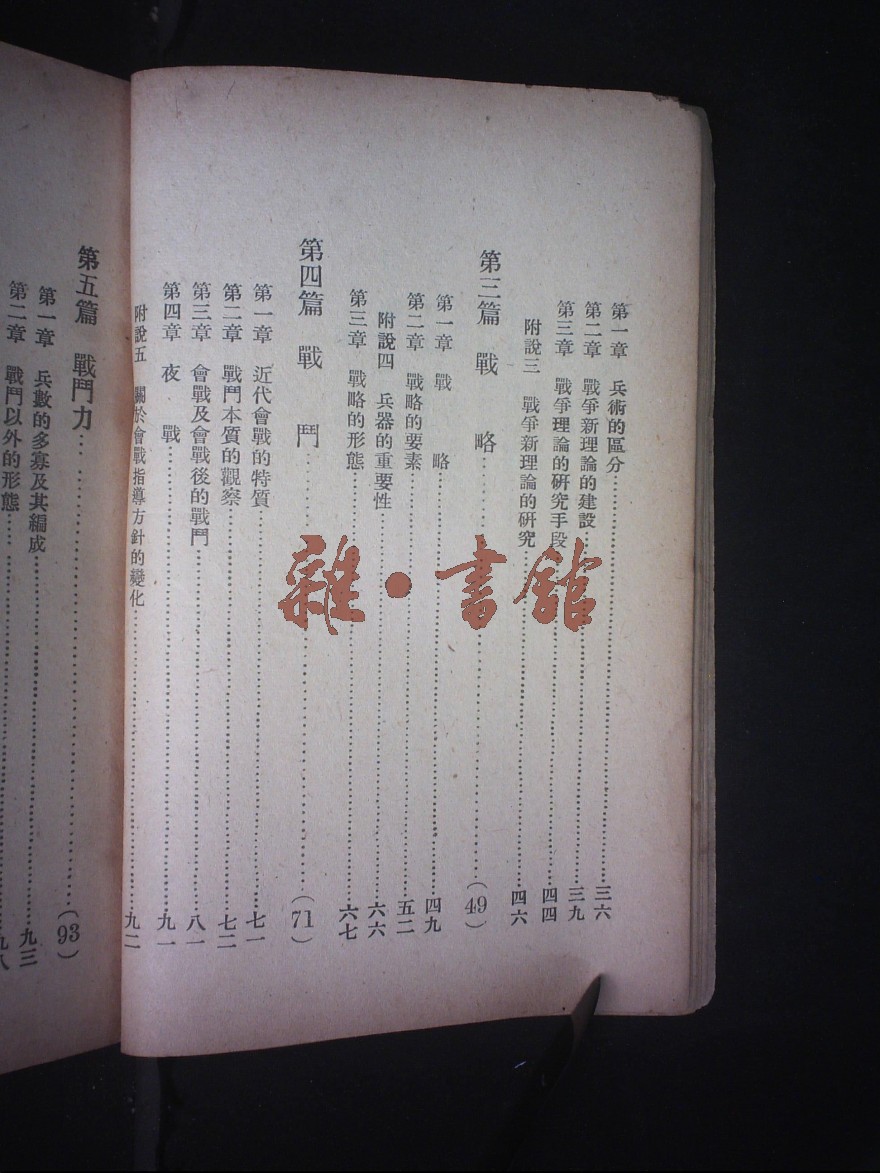 第一章　兵術的區分……三六
第二章　戰爭新理論的建設……三九
第三章　戰爭理論的研究手段……四四
附說三　戰爭新理論的研究……四六
第三篇　戰　略……(49)
第一章　戰　略……四九
第二章　戰略的要素……五二
附說四　兵器的重要性……六六
第三章　戰略的形態……六七
第四篇　戰　鬥……(71)
第一章　近代會戰的特質……七一
第二章　戰鬥本質的觀察……七二
第三章　會戰及會戰後的戰鬥……八一
第四章　夜　戰……九一
附說五　關於會戰指導方針的變化……九二
第五篇　戰鬥力……(93)
第一章　兵數的多寡及其編成……九三
第二章　戰鬥以外的形態……九八
雜·書館